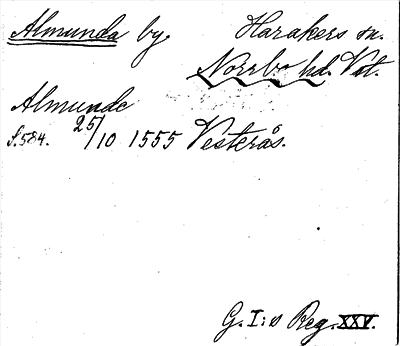 Almunda by. Harakers sn.
Norrbo hd. Vstl.
Almunde
S. 584. 25/10 1555 Vesterås.
G. I:s Reg. XXV.